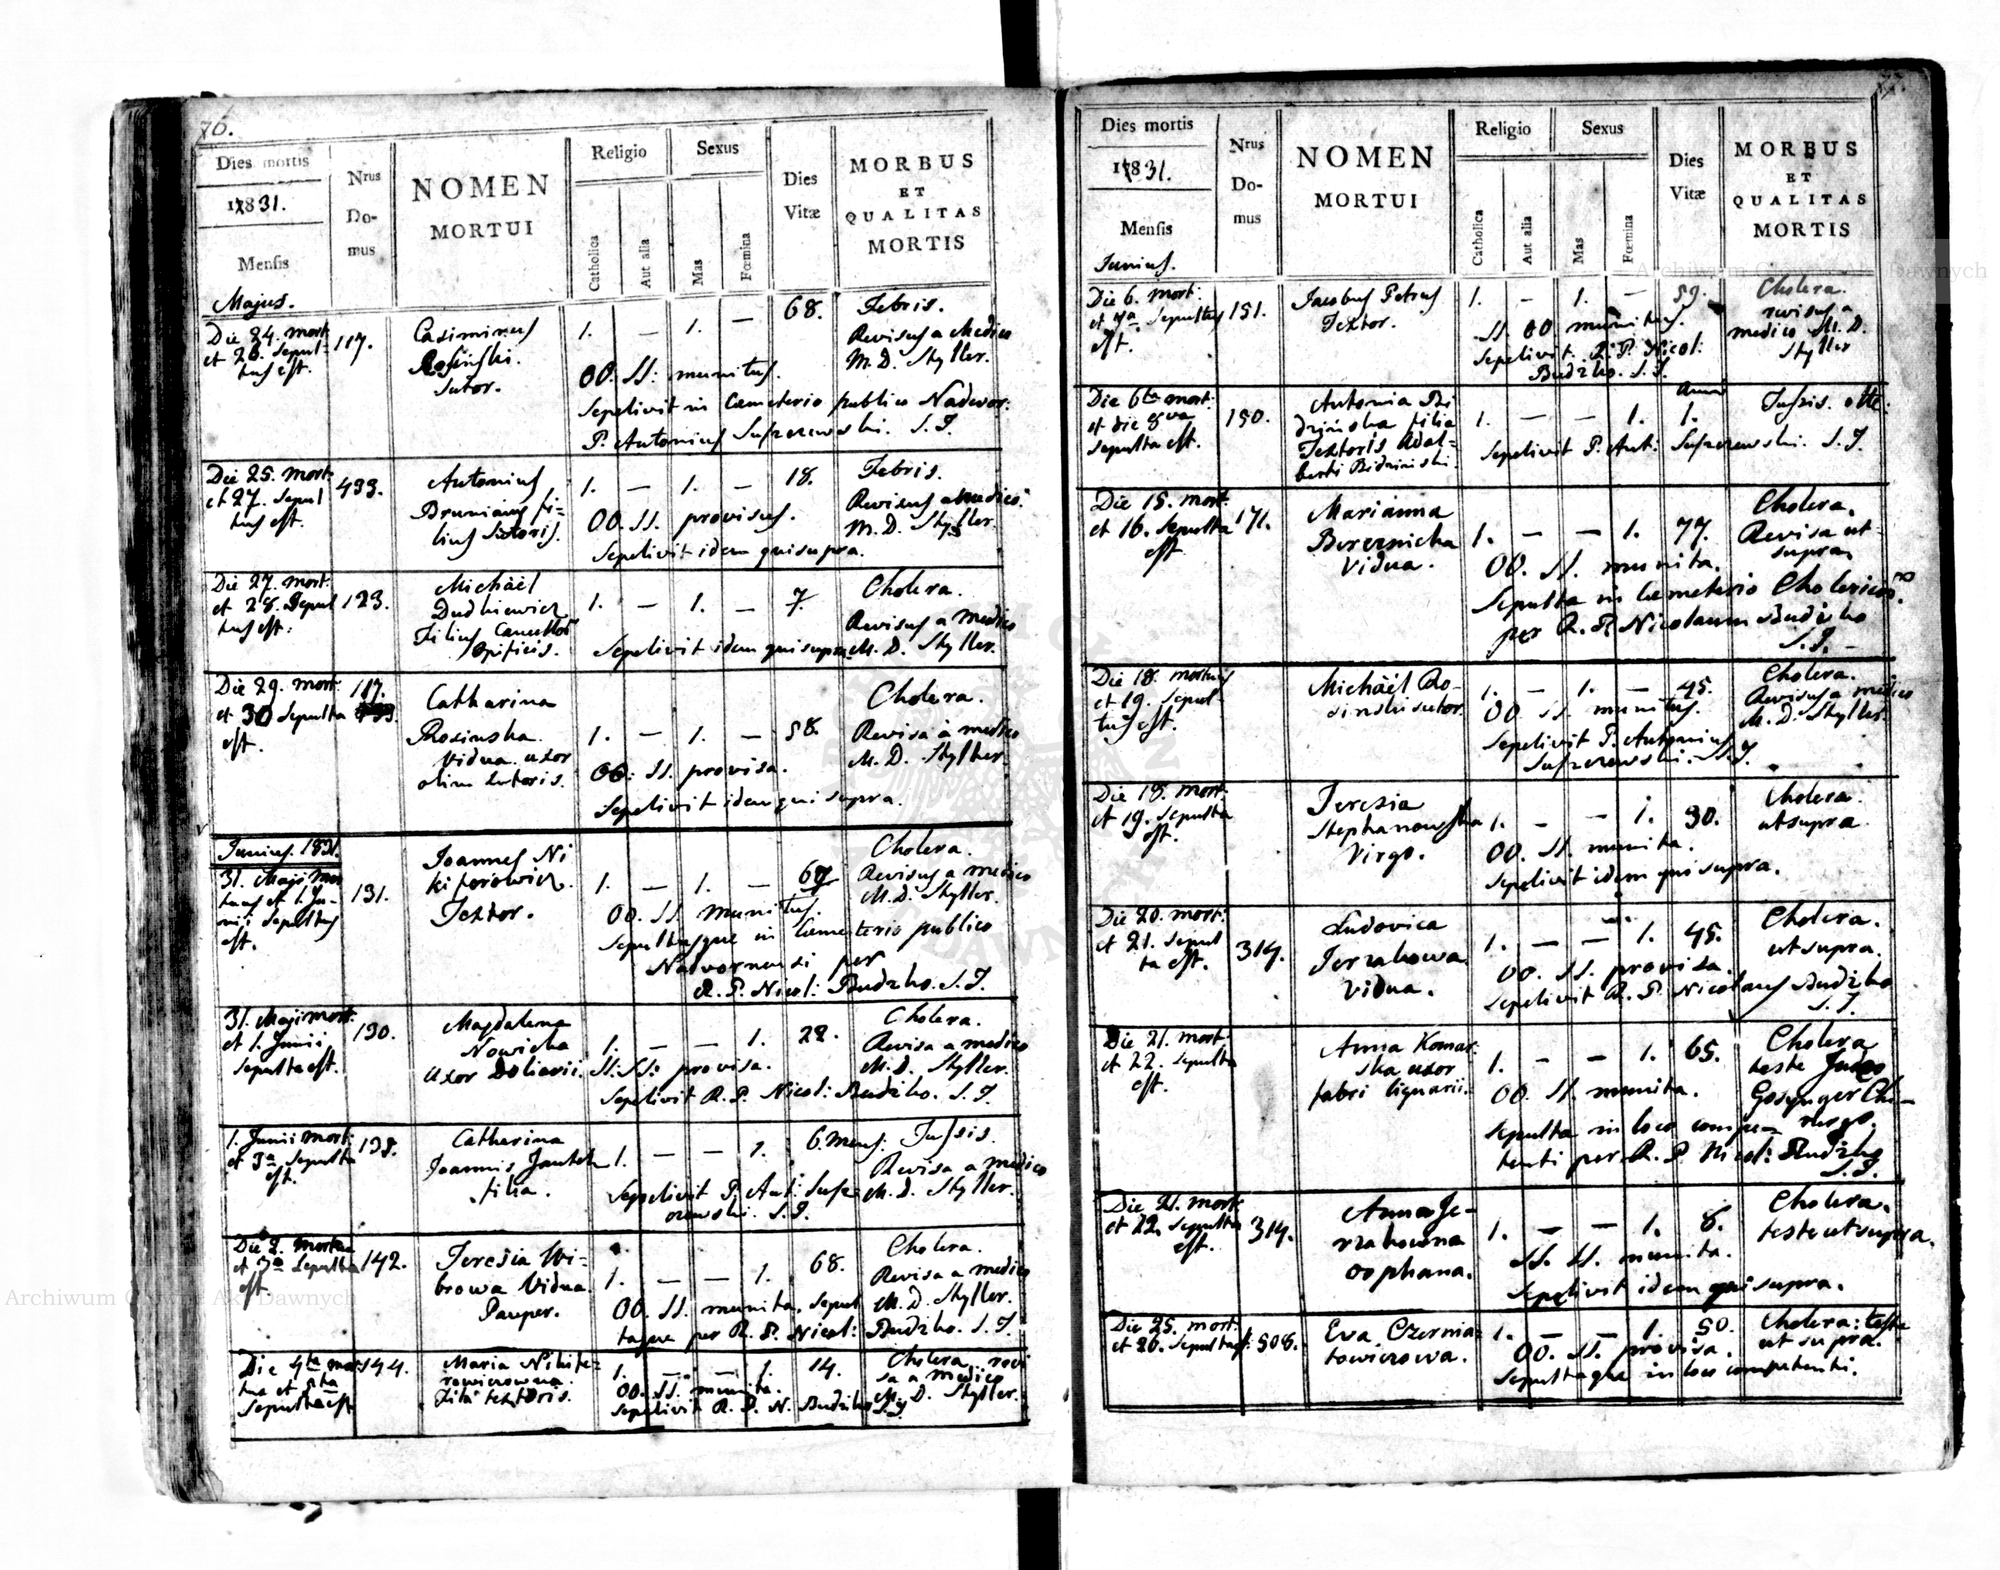 76.
Dies mortis
1831.
Mensis
Nrus
Do-
mus
NOMEN
MORTUI
Religio
Catholica
Aut alia
Sexus
Mas
Fœmina
Dies
Vitæ
MORBUS
ET
QUALITAS
MORTIS
Majus.
Die 24. mort:
et 26. Sepul-
tus est.
117.
Casimirus
Rosinski.
Sutor.
1. — 1. — 68.
OO. SS: munitus.
Sepelivit in Cœmeterio publico Nadwor:
P. Antonius Suszczewski. S. J.
Febris.
Revisus a Medico
M. D. Styller.
Die 25. mort:
et 27. Sepul
tus est.
433.
Antonius
Brunianus fi-
lius Sutoris.
1. — 1. — 18.
OO. SS. provisus.
Sepelivit idem qui supra.
Febris.
Revisus a medico
M. D. Styller.
Die 27. mort:
et 28. Sepul
tus est.
123.
Michäel
Dudkiewicz
Filius
opificis.
1. — 1. — 7.
Sepelivit idem qui supra.
Cholera.
Revisus a medico
M. D. Styller.
Die 29. mort:
et 30 Sepulta
est.
117.
Catharina
Rosinska.
Vidua uxor
olim sutoris.
1. — 1. — 58.
OO: SS. provisa.
Sepelivit idem qui supra.
Cholera.
Revisa à medico
M. D. Styller.
Junius. 1831.
31. Maji mor
tuus et 1. Ju-
nii sepultus
est.
131.
Joannes Ni
kiforowicz.
Textor.
1. — 1. —
OO. SS. munitus.
Sepultusque in Cœmeterio publico
Nadvornensi per
R. P. Nicol: Budzko. S. J.
Cholera.
Revisus a medico
M. D. Styller.
31. Maji mort:
et 1. Junii
sepulta est.
130.
Magdalena
Nowicka
Uxor Doliarii.
1. — — 1. 22.
SS. SS: provisa.
Sepelivit R. P. Nicol: Budzko. S. J.
Cholera.
Revisa a medico
M. D. Styller.
1. Junii mort:
et 3a Sepulta
est.
138.
Catharina
Joannis
filia.
1. — — 1. 6. mens:
Sepelivit P. Ant: Susz
czewski. S. J.
Tussis.
Revisa a medico
M. D. Styller.
Die 2. mortua
et 3a Sepulta
est.
142.
Teresia Wi-
browa Vidua
Pauper.
1. — — 1. 68.
OO. SS. munita. Sepul
taque per R. P. Nicol: Budzko. S. J.
Cholera.
Revisa a medico
M. D. Styller.
Die 4ta mor
tua et 5ta
Sepulta est
144.
Maria Nikife-
rowiczowna.
Filia textoris.
1. — — 1. 14.
OO. SS. munita.
Sepelivit R. P. N. Budzko S. J.
Cholera revi
sa a medico
M. D. Styller.
77.
Dies mortis
1831.
Mensis
Nrus
Do-
mus
NOMEN
MORTUI
Religio
Catholica
Aut alia
Sexus
Mas
Fœmina
Dies
Vitæ
MORBUS
ET
QUALITAS
MORTIS
Junius.
Die 6. mort:
et 7a Sepultus
est.
151.
Jacobus Petrus
Textor.
1. — 1. — 59.
SS. OO munitus.
Sepelivit R. P. Nicol:
Budzko. S. J.
Cholera.
revisus a
medico M. D.
Styller
Die 6ta mort:
et die 8va
sepulta est.
150.
Antonia Bi
dzińska filia
Textoris Adal-
berti Bidzinski.
1. — — 1. 1.
Anni
Sepelivit P. Ant: Suszczewski. S. J.
Tussis.
Die 15. mort:
et 16. Sepulta
est.
171.
Marianna
Bereznicka
Vidua.
1. — — 1. 77.
OO. SS. munita.
Sepulta in Cœmeterio Cholericos.
per R. P. Nicolaum Budzko
S. J. —
Cholera.
Revisa ut
supra.
Die 18. mortuus
et 19. Sepul-
tus est.
Michäel Ro-
sinski sutor.
1. — 1. — 45.
OO SS munitus.
Sepelivit P. Antonius
Suszczewski. S. J.
Cholera.
Revisus a medico
M. D. Styller.
Die 18. mort:
et 19. Sepulta
est.
Teresia
Stephanowska
Virgo.
1. — — 1. 30.
OO. SS. munita.
Sepelivit idem qui supra.
Cholera.
ut supra.
Die 20. mort:
et 21. Sepul
ta est.
314.
Ludovica
Jerzakowa.
Vidua.
1. — — 1. 45.
OO. SS. provisa.
Sepelivit R. P. Nicolaus Budzko
S. J.
Cholera.
ut supra.
Die 21. mort:
et 22. Sepulta
est.
Anna Komar:
ska uxor
fabri lignarii.
1. — — 1. 65.
OO. SS. munita.
Sepulta in loco compe-
tenti per R. P. Nicol: Budzko
S. J.
Cholera
teste
Chi-
rurgo.
Die 21. mort:
et 22. Sepulta
est.
314.
Anna Je-
rzakowna
orphana.
1. — — 1. 8.
SS. SS. munita.
Sepelivit idem qui supra.
Cholera.
teste ut supra.
Die 25. mort:
et 26. Sepulta est: 508.
Eva Czernia-
towiczowa.
1. — — 1. 50.
OO. SS. provisa.
Sepultaque in loco competenti.
Cholera: teste
ut supra.
Archiwum Główne Akt Dawnych
Archiwum Główne Akt Dawnych